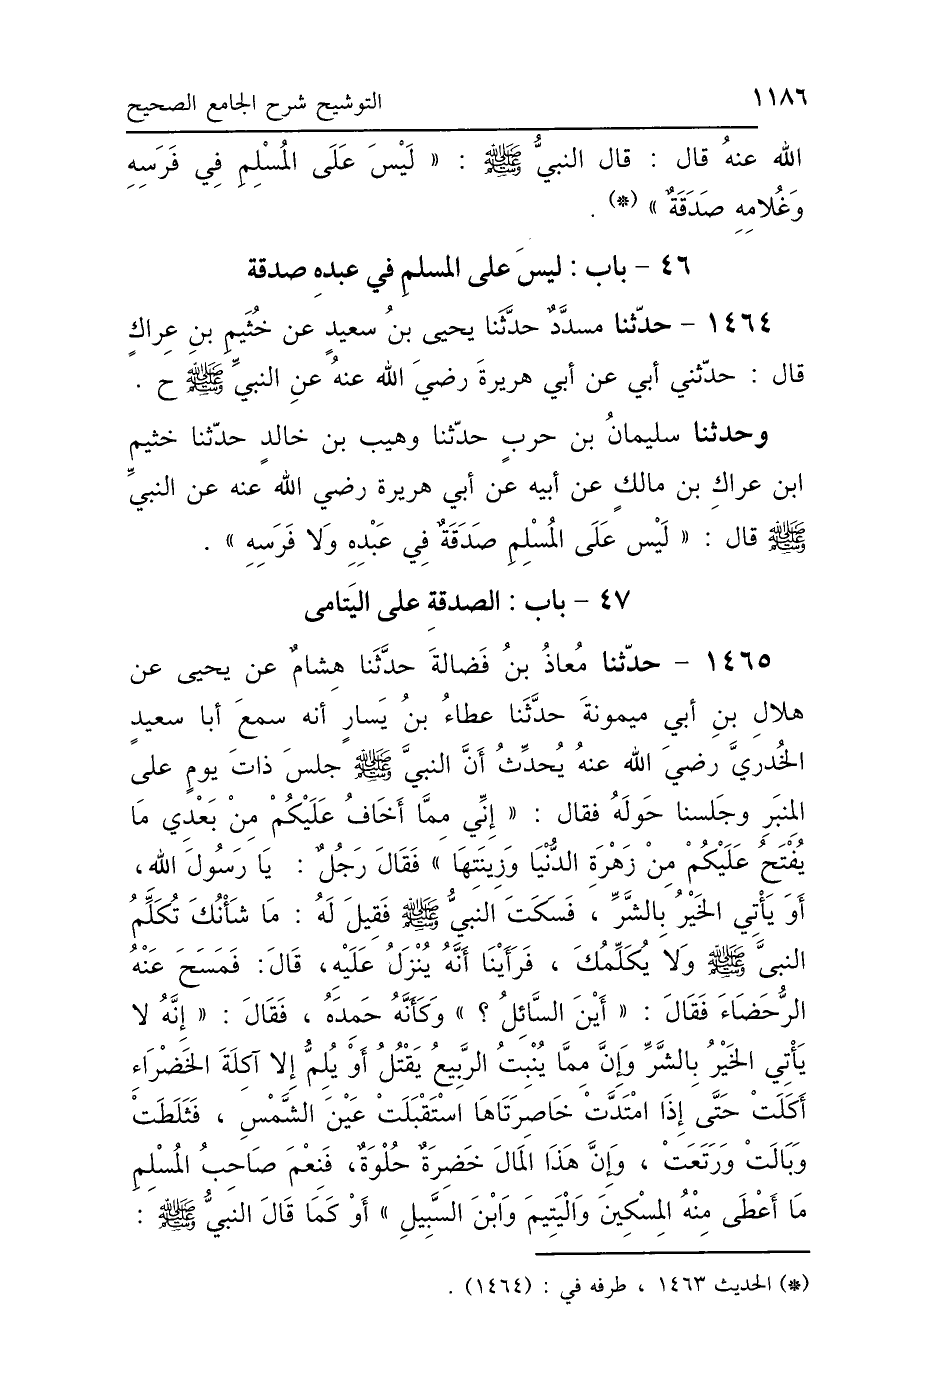 ١١٨٦ التوشيح شرح الجامع الصحيح
الله عنهُ قال : قال النبيُّ ﷺ : « لَيْسَ عَلَى الْمُسْلِمِ فِي فَرَسِهِ
وَغُلامِهِ صَدَقَةٌ » (*) .
٤٦ - باب : ليسَ على المسلمِ في عبدهِ صدقة
١٤٦٤ - حدّثنا مسدَّدٌ حدَّثَنا يحيى بنُ سعيدٍ عن خُثَيمِ بنِ عِراكٍ
قال : حدّثني أبي عن أبي هريرةَ رضيَ الله عنهُ عنِ النبيِّ ﷺ ح .
وحدثنا سليمانُ بن حربٍ حدّثنا وهيب بن خالدٍ حدّثنا خثيم
ابن عراكِ بن مالكٍ عن أبيه عن أبي هريرة رضي الله عنه عن النبيِّ
ﷺ قال : « لَيْسَ عَلَى الْمُسْلِمِ صَدَقَةٌ فِي عَبْدِهِ وَلا فَرَسِهِ » .
٤٧ - باب : الصدقة على اليَتامى
١٤٦٥ - حدّثنا مُعاذُ بنُ فَضالةَ حدَّثَنا هِشامٌ عن يحيى عن
هلالِ بنِ أبي ميمونةَ حدَّثَنا عطاءُ بنُ يَسارٍ أنه سمعَ أبا سعيدٍ
الخُدريَّ رضيَ الله عنهُ يُحدِّثُ أَنَّ النبيَّ ﷺ جلسَ ذاتَ يومٍ على
المِنبَرِ وجَلسنا حَولَهُ فقال : « إِنِّي مِمَّا أَخَافُ عَلَيْكُمْ مِنْ بَعْدِي مَا
يُفْتَحُ عَلَيْكُمْ مِنْ زَهْرَةِ الدُّنْيَا وَزِينَتِهَا » فَقَالَ رَجُلٌ : يَا رَسُولَ الله ،
أَوَ يَأْتِي الْخَيْرُ بِالشَّرِّ ، فَسَكَتَ النبيُّ ﷺ فَقِيلَ لَهُ : مَا شَأْنُكَ تُكَلِّمُ
النبيَّ ﷺ وَلا يُكَلِّمُكَ ، فَرَأَيْنَا أَنَّهُ يُنْزَلُ عَلَيْهِ ، قَالَ : فَمَسَحَ عَنْهُ
الرُّحَضَاءَ فَقَالَ : « أَيْنَ السَّائِلُ ؟ » وَكَأَنَّهُ حَمِدَهُ ، فَقَالَ : « إِنَّهُ لا
يَأْتِي الْخَيْرُ بِالشَّرِّ وَإِنَّ مِمَّا يُنْبِتُ الرَّبِيعُ يَقْتُلُ أَوْ يُلِمُّ إِلا آكِلَةَ الْخَضْرَاءِ
أَكَلَتْ حَتَّى إِذَا امْتَدَّتْ خَاصِرَتَاهَا اسْتَقْبَلَتْ عَيْنَ الشَّمْسِ ، فَثَلَطَتْ
وَبَالَتْ وَرَتَعَتْ ، وَإِنَّ هَذَا الْمَالَ خَضِرَةٌ حُلْوَةٌ، فَنِعْمَ صَاحِبُ الْمُسْلِمِ
مَا أَعْطَى مِنْهُ الْمِسْكِينَ وَالْيَتِيمَ وَابْنَ السَّبِيلِ » أَوْ كَمَا قَالَ النبيُّ ﷺ :
(*) الحديث ١٤٦٣ ، طرفه في : (١٤٦٤) .